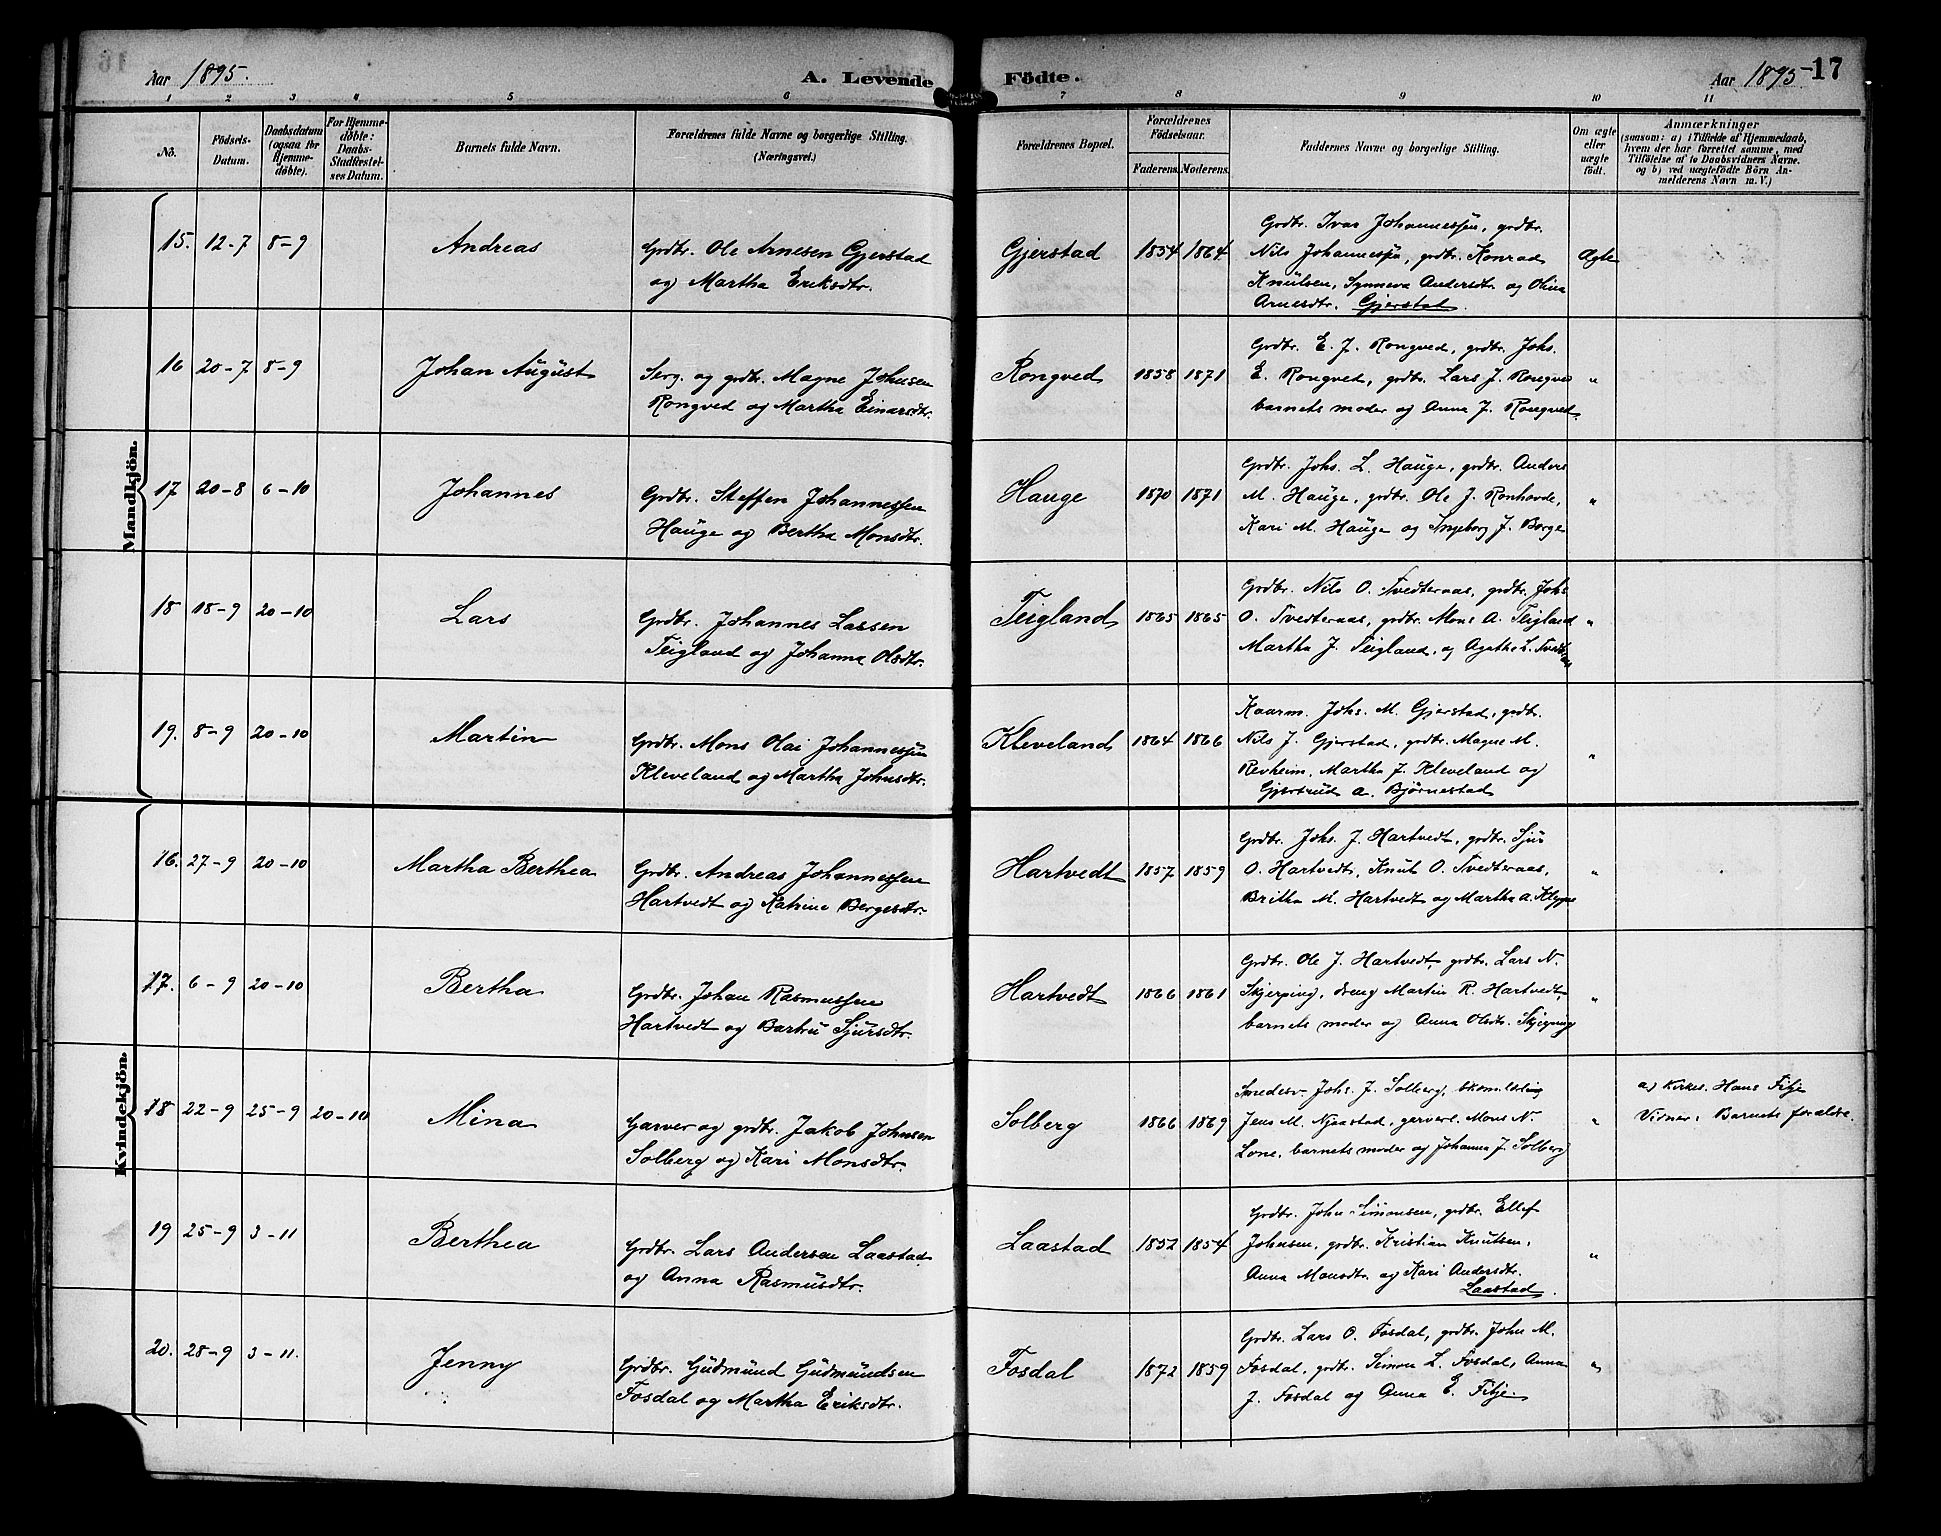 Aar 1895.
A. Levende
Födte.
Aar 1895
17
1 2 3 4 5 6 7 8 9 10 11
No.
Födsels-
Datum.
Daabsdatum
(ogsaa for
Hjemme-
döbte).
For Hjemme-
döbte:
Daabs-
Stadfæstel-
ses Datum.
Barnets fulde Navn.
Forældrenes fulde Navne og borgerlige Stilling.
(Næringsvei.)
Forældrenes Bopæl.
Forældrenes
Födselsaar.
Faderens. Moderens.
Faddernes Navne og borgerlige Stilling.
Om ægte
eller
uægte
födt.
Anmærkninger
(saasom: a) i Tilfælde af Hjemmedaab,
hvem der har forrettet samme, med
Tilföielse af to Daabsvidners Navne.
og b) ved uægtefödte Börn An-
melderens Navn m. V.)
Mandkjön.
15. 12-7 8-9
Andreas
Grdbr. Ole Arnesen Gjerstad
og Martha Eriksdtr.
Gjerstad
1854 1864
Grdbr. Ivar Johannessen, grdbr.
Nils Johannessen, grdbr. Konrad
Knutsen, Synneva Andersdtr. og Olina
Arnesdtr. Gjerstad.
Ægte
16 20-7 8-9
Johan August
Serg. og grdbr. Magne Johnsen
Rongved og Martha Einarsdtr.
Rongved
1858 1871
Grdbr. E. J. Rongved, grdbr. Johs.
E. Rongved, grdbr. Lars J. Rongved
barnets moder og Anna J. Rongved.
"
17 20-8 6-10
Johannes
Grdbr. Steffen Johannessen
Hauge og Bertha Monsdtr.
Hauge
1870 1871
Grdbr. Johs. L. Hauge, grdbr. Anders
M. Hauge, grdbr. Ole J. Ronhovde,
Kari M. Hauge og Ingeborg J. Borge
"
18 18-9 20-10
Lars
Grdbr. Johannes Larsen
Teigland og Johanna Olsdtr.
Teigland
1865 1865
Grdbr. Nils O. Tvedteraas, grdbr. Johs.
O. Tvedteraas, grdbr. Mons A. Teigland
Martha J. Teigland, og Agathe L. Tvedteraas
"
19. 8-9 20-10
Martin
Grdbr. Mons Olai Johannessen
Kleveland og Martha Johnsdtr.
Kleveland
1864 1866
Kaarm. Johs. M. Gjerstad, grdbr.
Nils J. Gjerstad, grdbr. Magne M.
Revheim, Martha J. Kleveland og
Gjertrud A. Bjørnestad
"
Kvindekjön.
16. 27-9 20-10
Martha Berthea
Grdbr. Andreas Johannessen
Hartvedt og Katrine Bergesdtr.
Hartvedt
1857 1859
Grdbr. Johs. J. Hartvedt, grdbr. Sjur
O. Hartvedt, Knut O. Tvedteraas,
Britha M. Hartvedt og Martha A.
"
17. 6-9 20-10
Bertha
Grdbr. Johan Rasmussen
Hartvedt og Bartru Sjursdtr.
Hartvedt
1866 1861
Grdbr. Ole J. Hartvedt, grdbr. Lars N.
Skjerping, dreng Martin R. Hartvedt,
barnets moder og Anna Olsdtr. Skjerping
"
18 22-9 25-9 20-10
Mina
Garver og grdbr. Jakob Johnsen
Solberg og Kari Monsdtr.
Solberg
1866 1869
Smedesv. Johs. J. Solberg, skomlærling
Jens M. Njaastad, garverl. Mons N.
Lone, barnets moder og Johanna J. Solberg
"
a) Kirkes. Hans Fitje
Vidner: Barnets forældre.
19 25-9 3-11
Berthea
Grdbr. Lars Andersen Laastad
og Anna Rasmusdtr.
Laastad
1852 1854
Grdbr. John Simonsen, grdbr. Ellef
Johnsen, grdbr. Kristian Knutsen,
Anna Monsdtr. og Kari Andersdtr.
Laastad.
"
20. 28-9 3-11.
Jenny
Grdbr. Gudmund Gudmundsen
Fosdal og Martha Eriksdtr.
Fosdal
1872 1859
Grdbr. Lars O. Fosdal, grdbr. John M.
Fosdal, grdbr. Simon L. Fosdal, Anna
J. Fosdal og Anna E. Fitje.
"